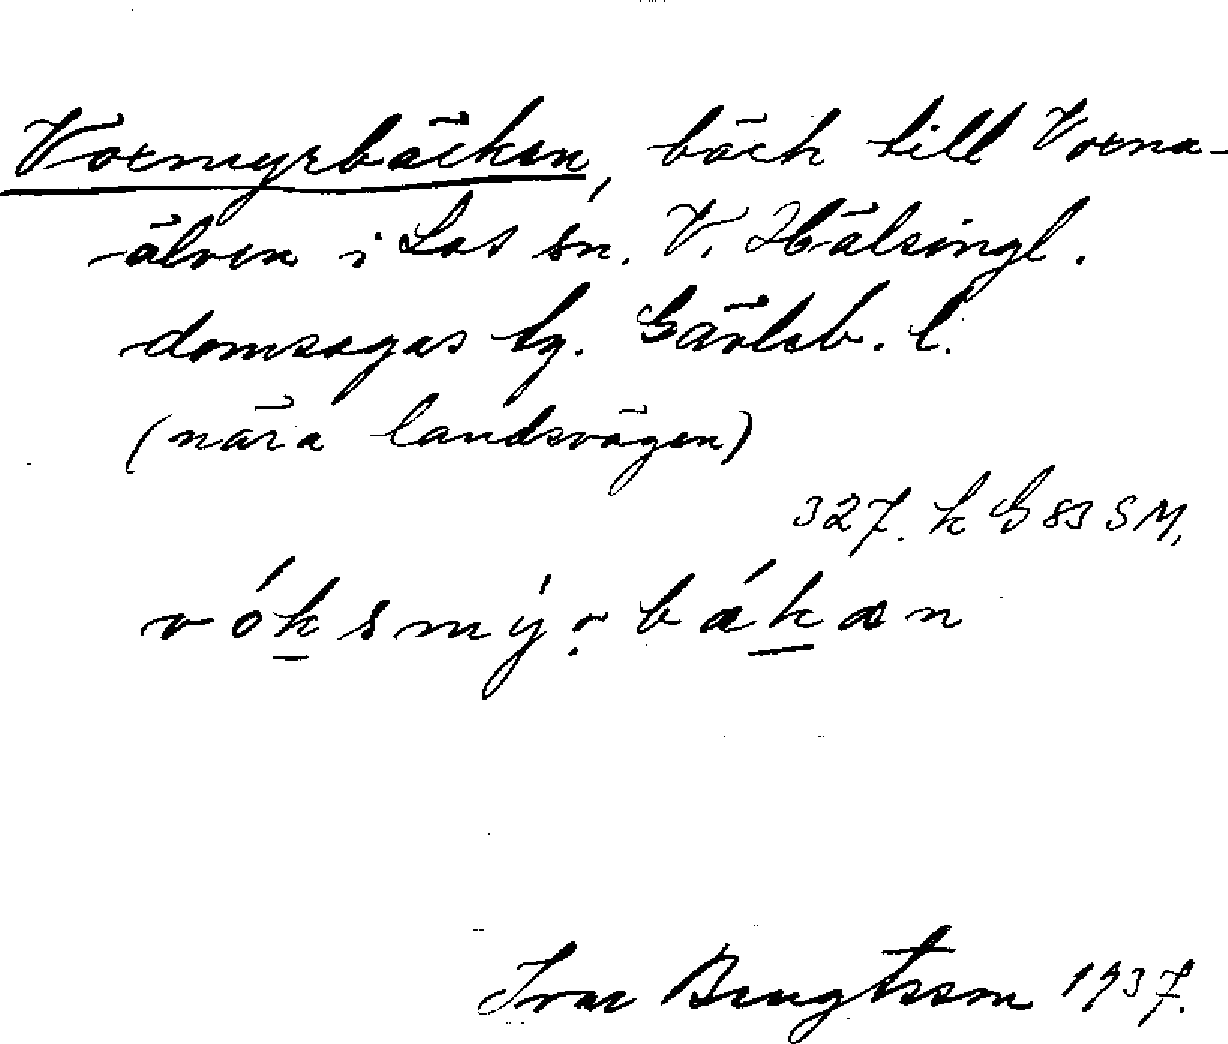 Voxmyrbäcken, bäck till Voxna-
älven i Los sn. V. Hälsingl.
domsagas tg. Gävleb. l.
(nära landsvägen)
327. k G 83 SM,
vóksmýrbákan
Ivar Bengtsson 1937.